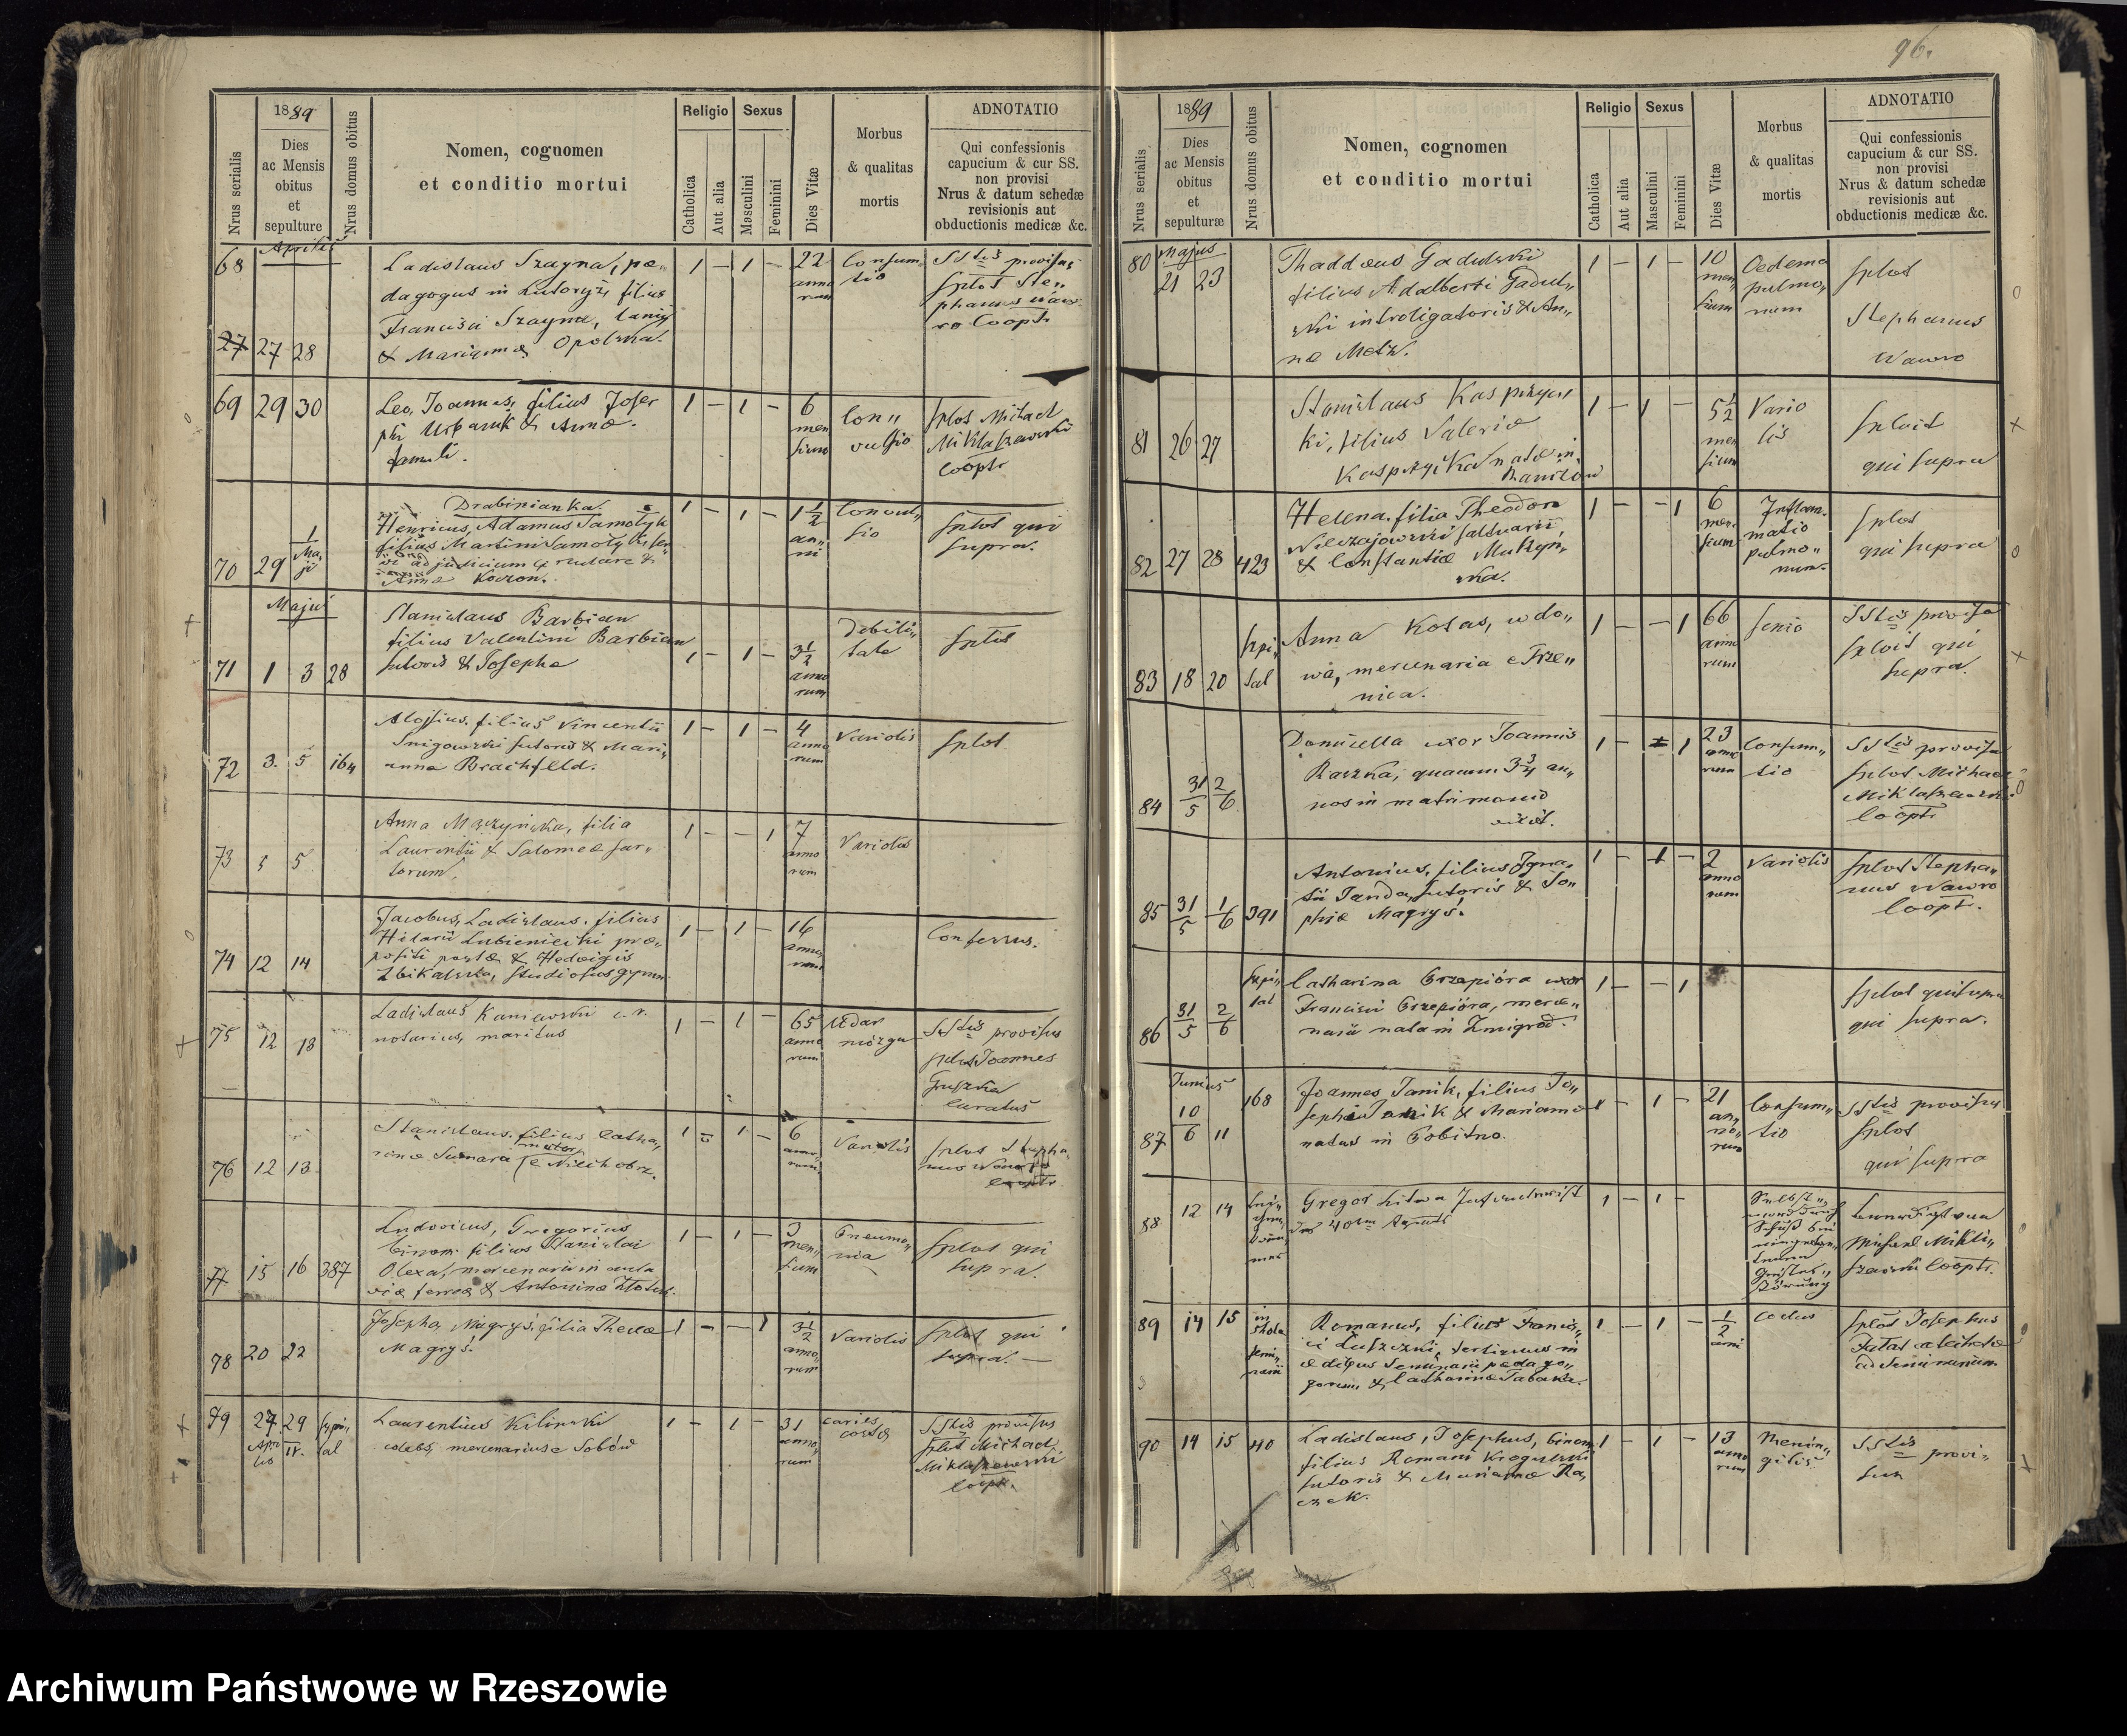 96.
1889
Nrus serialis
Dies
ac Mensis
obitus
et
sepulture
Nrus domus obitus
Nomen, cognomen
et conditio mortui
Religio
Catholica
Aut alia
Sexus
Masculini
Feminini
Dies Vitæ
Morbus
& qualitas
mortis
ADNOTATIO
Qui confessionis
capucium & cur SS.
non provisi
Nrus & datum schedæ
revisionis aut
obductionis medicæ &c.
Aprilis
68
27 27 28
Ladislaus Szayna, pæ„
dagogus in Lutoryż, filius
Francisci Szayna,
& Mariannæ Opolska.
1 — 1 —
22
anno
rum
Consum„
tio
SStis provisus
Splos Ste„
phanus Waw
ro Coopt.
69 29 30
Leo, Joannes, filius Jose
phi Urbanik & Annæ
famuli.
1 — 1 —
6
men
sium
Con„
vulsio
Splos Michael
Miklaszewski
Coopt.
70 29
1
Ma„
ji
Drabinianka
Henricus, Adamus Samolyk
filius Martini Samolyk
ad judicium &
Anna Kozon.
1 — 1 —
1 1/2
an„
ni
Convul„
sio
Splos qui
supra.
Majus
71 1 3 28
Stanislaus Barbian
filius Valentini Barbian
sutoris & Josepha
1 — 1 —
3 1/2
anno
rum
Debili„
tate
Splos
72 3. 5 164
Alojsius, filius Vincentii
Snigowski sutoris & Mari„
anna Brachfeld.
1 — 1 —
4
anno
rum
Variolis
Splos.
73 3 5
Anna Mączyńska, filia
Laurentii & Salomeæ sar„
torum.
1 — — 1
7
anno
rum
Variolis
74 12 14
Jacobus, Ladislaus, filius
Hilarii Lubieniecki præ„
positi postæ & Hedvigis
Zbikalska, studiosus gymn.
1 — 1 —
16
anno
rum
Confessus.
75 12 13
Ladislaus Kaniewski c. r.
notarius, maritus
1 — 1 —
65
anno
rum
Udar
mózgu
SStis provisus
Splos Joannes
Gruszka
Curatus
76 12 13
Stanislaus, filius Catha„
rinæ Sumara
1 1 —
6
anno„
rum
Variolis
Splos Stepha„
nus Wawro
77 15 16 387
Ludovicus, Gregorius
binom. filius Stanislai
Olexa, mercenarii in
via ferrea & Antoninæ
1 — 1 —
3
men„
sium
Pneumo„
nia
Splos qui
supra.
78 20 22
Josepha Magryś, filia Theclæ
Magryś.
1 — — 1
3 1/2
anno„
rum
Variolis
Splos qui
supra. —
79
27. 29
Apri
lis IV.
szpi„
tal
Laurentius Kilinski
cælebs mercenarius e Sobów
1 — 1 —
31
anno„
rum
caries
costæ
SStis provisus
Splos Michael
Miklaszewski
Coopt.
1889
Nrus serialis
Dies
ac Mensis
obitus
et
sepulturæ
Nrus domus obitus
Nomen, cognomen
et conditio mortui
Religio
Catholica
Aut alia
Sexus
Masculini
Feminini
Dies Vitæ
Morbus
& qualitas
mortis
ADNOTATIO
Qui confessionis
capucium & cur SS.
non provisi
Nrus & datum schedæ
revisionis aut
obductionis medicæ &c.
Majus
80 21 23
Thaddæus Gadulski
filius Adalberti Gadul„
ski introligatoris & An„
næ Metz.
1 — 1 —
10
men
sium
Oedema
pulmo„
num
Splos
Stephanus
Wawro
81 26 27
Stanislaus Kasprzyc
ki, filius Valeriæ
Kasprzycka natæ in
Raniżów
1 — 1 —
5 1/2
men
sium
Vario
lis
Spluit
qui supra
82 27 28 423
Helena, filia Theodori
Niezajowski saltuarii
& Constantiæ Muszyń„
ska.
1 — — 1
6
men„
sium
Inflam„
matio
pulmo„
num.
Splos
qui supra
83 18 20
szpi„
tal
Anna Kotas, wdo„
wa, mercenaria e Trze„
nica.
1 — — 1
66
anno
rum
senio
SStis provisa
Spluit qui
supra.
84 31/5 2/6
Domicella uxor Joannis
Raszka, quacum 3 3/4 an„
nos in matrimonio
vixit.
1 — 1
23
anno
rum
Consum„
tio
SStis provisa
Splos Michael
Miklaszewski
Coopt.
85 31/5 1/6 391
Antonius, filius Igna„
tii Janda, sutoris & So„
phiæ Magryś.
1 — 1 —
2
anno
rum
Variolis
Splos Stepha„
nus Wawro
Coopt.
86 31/5 2/6
szpi„
tal
Catharina Przepióra uxor
Francisci Przepióra, merce„
narii nata in Żmigród.
1 — — 1
Splos qui supra
qui supra.
Junius
87 10/6 11 168
Joannes Janik, filius Jo„
sephi Janik & Marianna
natus in Pobitno.
1 — 1 —
21
an„
no„
rum
Consum„
tio
SStis provisus
Splos
qui supra
88 12 14
Gregor Litwa Infanterist
1 — 1 —
89 14 15
in
schola
semi„
narii
Romanus, filius Francis„
ci Łuszczki, tertianus in
ædibus Seminarii pædago„
gorum & Catharinæ Tabaka.
1 — 1 —
1/2
anni
Splos Josephus
catecheta
ad Seminarium
90 14 15 40
Ladislaus, Josephus, binom.
filius Romani Krogulski
sutoris & Mariannæ Ra„
czek.
1 — 1 —
13
anno
rum
Menin„
gitis
SStis provi„
sus
Archiwum Państwowe w Rzeszowie